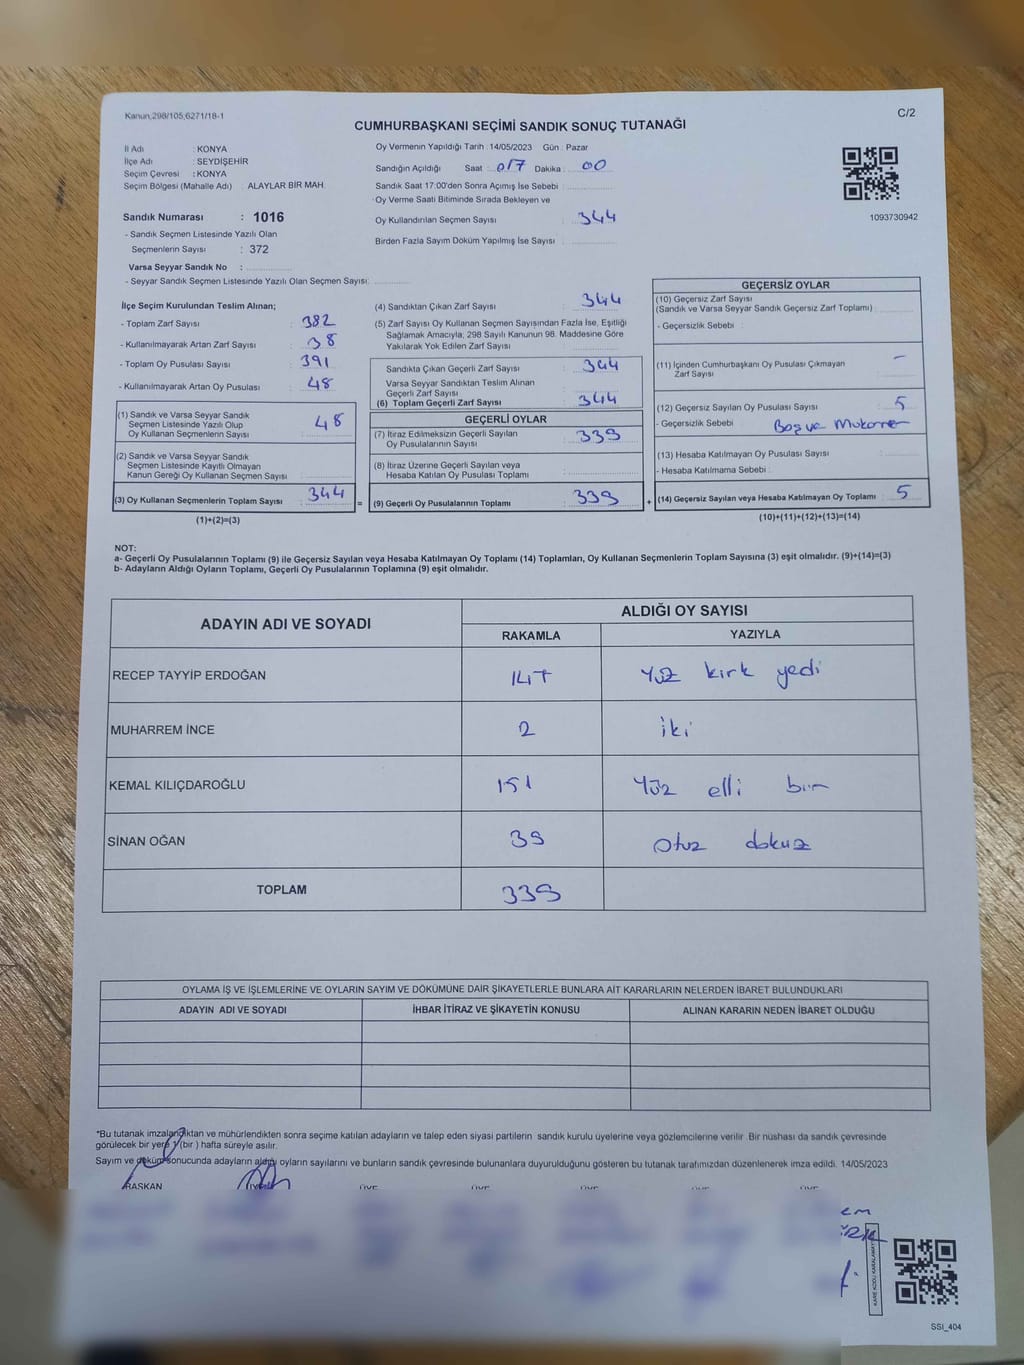 Kanun,298/105,6271/18-1
C/2
CUMHURBAŞKANI SEÇİMİ SANDIK SONUÇ TUTANAĞI
İl Adı : KONYA
İlçe Adı : SEYDİŞEHİR
Seçim Çevresi : KONYA
Seçim Bölgesi (Mahalle Adı) : ALAYLAR BİR MAH.
Sandık Numarası : 1016
- Sandık Seçmen Listesinde Yazılı Olan
Seçmenlerin Sayısı : 372
Varsa Seyyar Sandık No :
- Seyyar Sandık Seçmen Listesinde Yazılı Olan Seçmen Sayısı:
Oy Vermenin Yapıldığı Tarih : 14/05/2023 Gün : Pazar
Sandığın Açıldığı Saat : 017 Dakika : 00
Sandık Saat 17:00'den Sonra Açımış İse Sebebi :
Oy Verme Saati Bitiminde Sırada Bekleyen ve
Oy Kullandırılan Seçmen Sayısı : 344
Birden Fazla Sayım Döküm Yapılmış İse Sayısı :
1093730942
İlçe Seçim Kurulundan Teslim Alınan;
- Toplam Zarf Sayısı : 382
- Kullanılmayarak Artan Zarf Sayısı : 38
- Toplam Oy Pusulası Sayısı : 391
- Kullanılmayarak Artan Oy Pusulası : 48
(1) Sandık ve Varsa Seyyar Sandık
Seçmen Listesinde Yazılı Olup
Oy Kullanan Seçmenlerin Sayısı : 48
(2) Sandık ve Varsa Seyyar Sandık
Seçmen Listesinde Kayıtlı Olmayan
Kanun Gereği Oy Kullanan Seçmen Sayısı :
(3) Oy Kullanan Seçmenlerin Toplam Sayısı : 344
(1)+(2)=(3)
=
(4) Sandıktan Çıkan Zarf Sayısı : 344
(5) Zarf Sayısı Oy Kullanan Seçmen Sayısından Fazla İse, Eşitliği
Sağlamak Amacıyla, 298 Sayılı Kanunun 98. Maddesine Göre
Yakılarak Yok Edilen Zarf Sayısı :
Sandıkta Çıkan Geçerli Zarf Sayısı : 344
Varsa Seyyar Sandıktan Teslim Alınan
Geçerli Zarf Sayısı :
(6) Toplam Geçerli Zarf Sayısı : 344
GEÇERLİ OYLAR
(7) İtiraz Edilmeksizin Geçerli Sayılan
Oy Pusulalarının Sayısı : 339
(8) İtiraz Üzerine Geçerli Sayılan veya
Hesaba Katılan Oy Pusulası Toplamı :
(9) Geçerli Oy Pusulalarının Toplamı : 339
+
GEÇERSİZ OYLAR
(10) Geçersiz Zarf Sayısı
(Sandık ve Varsa Seyyar Sandık Geçersiz Zarf Toplamı) :
- Geçersizlik Sebebi :
(11) İçinden Cumhurbaşkanı Oy Pusulası Çıkmayan
Zarf Sayısı : -
(12) Geçersiz Sayılan Oy Pusulası Sayısı : 5
- Geçersizlik Sebebi : Boş ve Mükerrer
(13) Hesaba Katılmayan Oy Pusulası Sayısı :
- Hesaba Katılmama Sebebi :
(14) Geçersiz Sayılan veya Hesaba Katılmayan Oy Toplamı : 5
(10)+(11)+(12)+(13)=(14)
NOT:
a- Geçerli Oy Pusulalarının Toplamı (9) ile Geçersiz Sayılan veya Hesaba Katılmayan Oy Toplamı (14) Toplamları, Oy Kullanan Seçmenlerin Toplam Sayısına (3) eşit olmalıdır. (9)+(14)=(3)
b- Adayların Aldığı Oyların Toplamı, Geçerli Oy Pusulalarının Toplamına (9) eşit olmalıdır.
ADAYIN ADI VE SOYADI
ALDIĞI OY SAYISI
RAKAMLA YAZIYLA
RECEP TAYYİP ERDOĞAN 147 Yüz kırk yedi
MUHARREM İNCE 2 iki
KEMAL KILIÇDAROĞLU 151 Yüz elli bir
SİNAN OĞAN 39 otuz dokuz
TOPLAM 339
OYLAMA İŞ VE İŞLEMLERİNE VE OYLARIN SAYIM VE DÖKÜMÜNE DAİR ŞİKAYETLERLE BUNLARA AİT KARARLARIN NELERDEN İBARET BULUNDUKLARI
ADAYIN ADI VE SOYADI İHBAR İTİRAZ VE ŞİKAYETİN KONUSU ALINAN KARARIN NEDEN İBARET OLDUĞU
*Bu tutanak imzalandıktan ve mühürlendikten sonra seçime katılan adayların ve talep eden siyasi partilerin sandık kurulu üyelerine veya gözlemcilerine verilir .Bir nüshası da sandık çevresinde
görülecek bir yere 1 (bir ) hafta süreyle asılır.
Sayım ve döküm sonucunda adayların aldığı oyların sayılarını ve bunların sandık çevresinde bulunanlara duyurulduğunu gösteren bu tutanak tarafımızdan düzenlenerek imza edildi. 14/05/2023
BAŞKAN ÜYE ÜYE ÜYE ÜYE ÜYE ÜYE
SSI_404